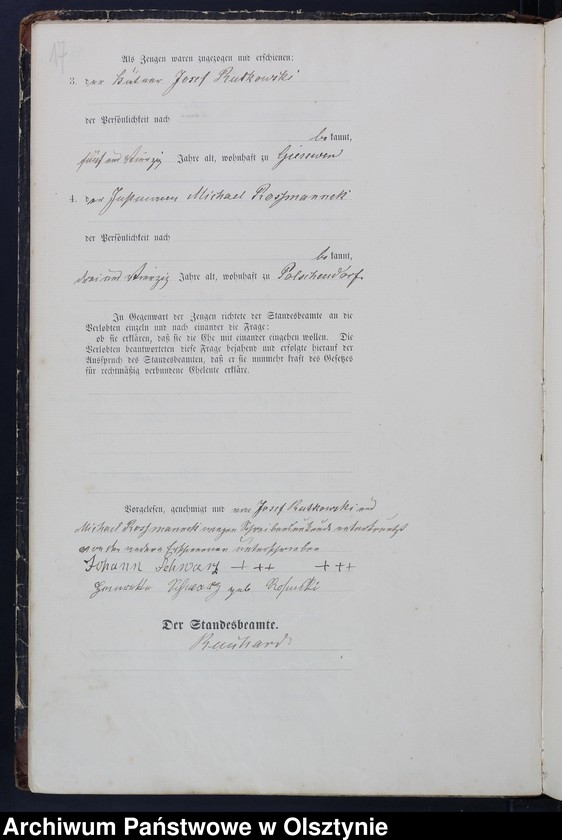 17
Als Zeugen waren zugezogen und erschienen:
3. der Kätner Josef Rutkowski
der Persönlichkeit nach
bekannt,
fünf und vierzig Jahre alt, wohnhaft zu Giesewen
4. der Instmann Michael Roßmannek
der Persönlichkeit nach
bekannt,
drei und vierzig Jahre alt, wohnhaft zu Polschendorf
In Gegenwart der Zeugen richtete der Standesbeamte an die
Verlobten einzeln und nach einander die Frage:
ob sie erklären, daß sie die Ehe mit einander eingehen wollen. Die
Verlobten beantworteten diese Frage bejahend und erfolgte hierauf der
Ausspruch des Standesbeamten, daß er sie nunmehr kraft des Gesetzes
für rechtmäßig verbundene Eheleute erkläre.
Vorgelesen, genehmigt und von Josef Rutkowski und
Michael Roßmannek wegen Schreibensunkunde unterkreuzt
von den andern Erschienenen unterschrieben
Johann Schwarz +++ +++
Schwarz geb
Der Standesbeamte.
Archiwum Państwowe w Olsztynie